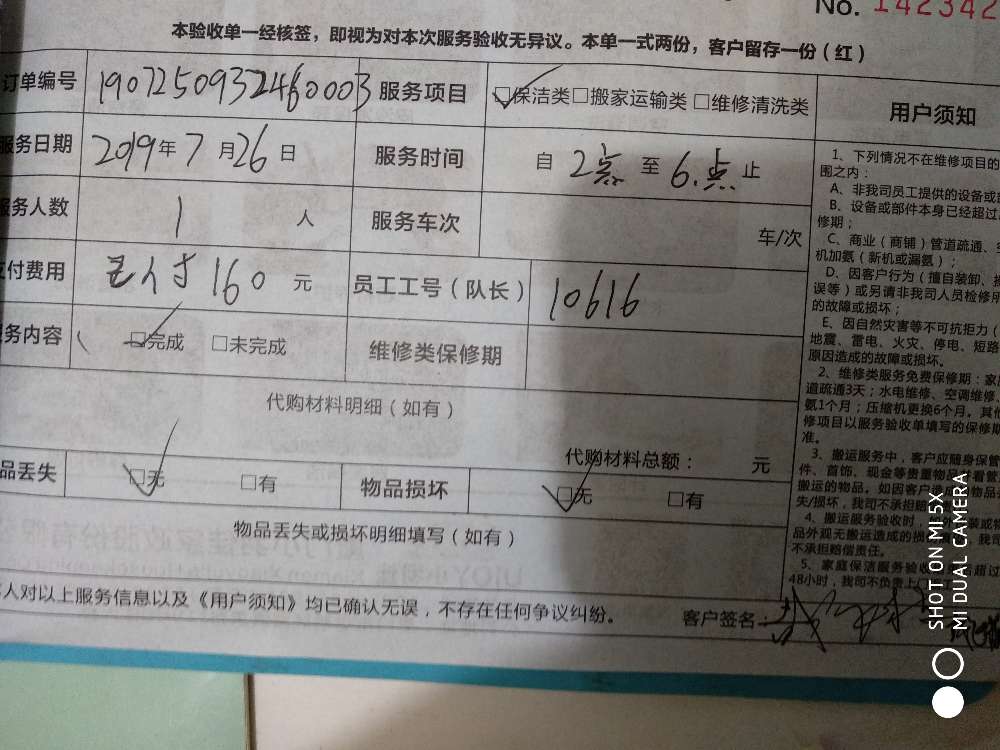 No. 142342
本验收单一经核签，即视为对本次服务验收无异议。本单一式两份，客户留存一份（红）
订单编号 1907250932460003 服务项目 ☑保洁类□搬家运输类□维修清洗类 用户须知
服务日期 2019年7月26日 服务时间 自2点至6.点止
服务人数 1人 服务车次 车/次
应付费用 已付160元 员工工号（队长） 10616
服务内容 ☑完成 □未完成 维修类保修期
代购材料明细（如有）
代购材料总额： 元
品丢失 ☑无 □有 物品损坏 ☑无 □有
物品丢失或损坏明细填写（如有）
人对以上服务信息以及《用户须知》均已确认无误，不存在任何争议纠纷。 客户签名：
1、下列情况不在维修项目的
围之内：
A、非我司员工提供的设备或
B、设备或部件本身已经超过
修期；
C、商业（商铺）管道疏通、
机加氨（新机或漏氨）；
D、因客户行为（擅自装卸、
误等）或另请非我司人员检修
的故障或损坏；
E、因自然灾害等不可抗拒力（
地震、雷电、火灾、停电、短路
原因造成的故障或损坏。
2、维修类服务免费保修期：家
道疏通3天；水电维修、空调维修、
氨1个月；压缩机更换6个月。其他
修项目以服务验收单填写的保修期
准。
3、搬运服务中，客户应随身保管
件、首饰、现金等贵重物品并看管
搬运的物品。如因客户造成物品
失/损坏，我司不承担赔
4、搬运服务验收时，外装或物
品外观无搬运造成的损，我司
不承担赔偿责任。
5、家庭保洁服务验收后超过
48小时，我司不负责上门工
SHOT ON MI 5X
MI DUAL CAMERA